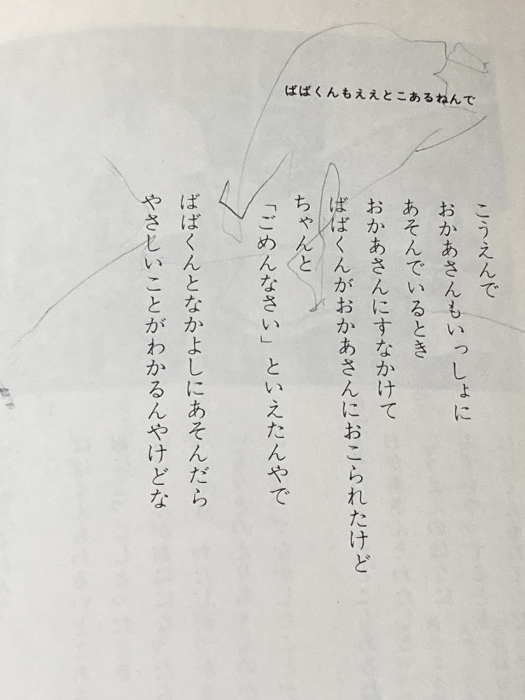 ばばくんもええとこあるねんで
こうえんで
おかあさんもいっしょに
あそんでいるとき
おかあさんにすなかけて
ばばくんがおかあさんにおこられたけど
ちゃんと
「ごめんなさい」といえたんやで
ばばくんとなかよしにあそんだら
やさしいことがわかるんやけどな